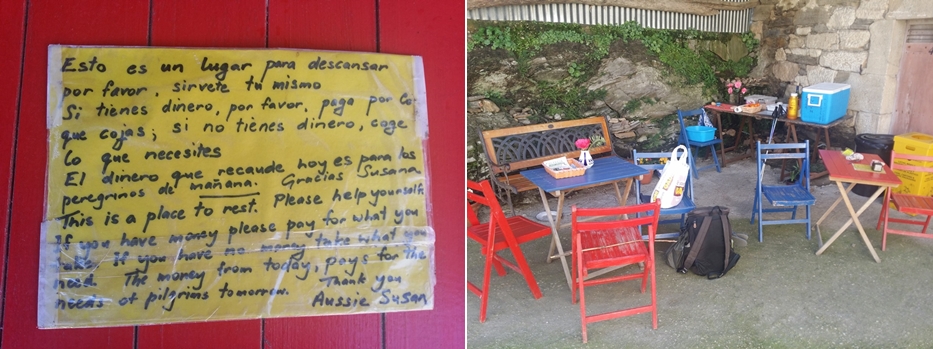 Esto es un lugar para descansar
por favor, sirvete tu mismo
Si tienes dinero, por favor, paga por lo
que cojas; si no tienes dinero, coge
lo que necesites
El dinero que recaude hoy es para los
peregrinos de mañana. Gracias Susana
This is a place to rest. Please help yourself.
If you have money please pay for what you
take. If you have no money take what you
need. The money from today, pays for the
needs of pilgrims tomorrow. Thank you
Aussie Susan